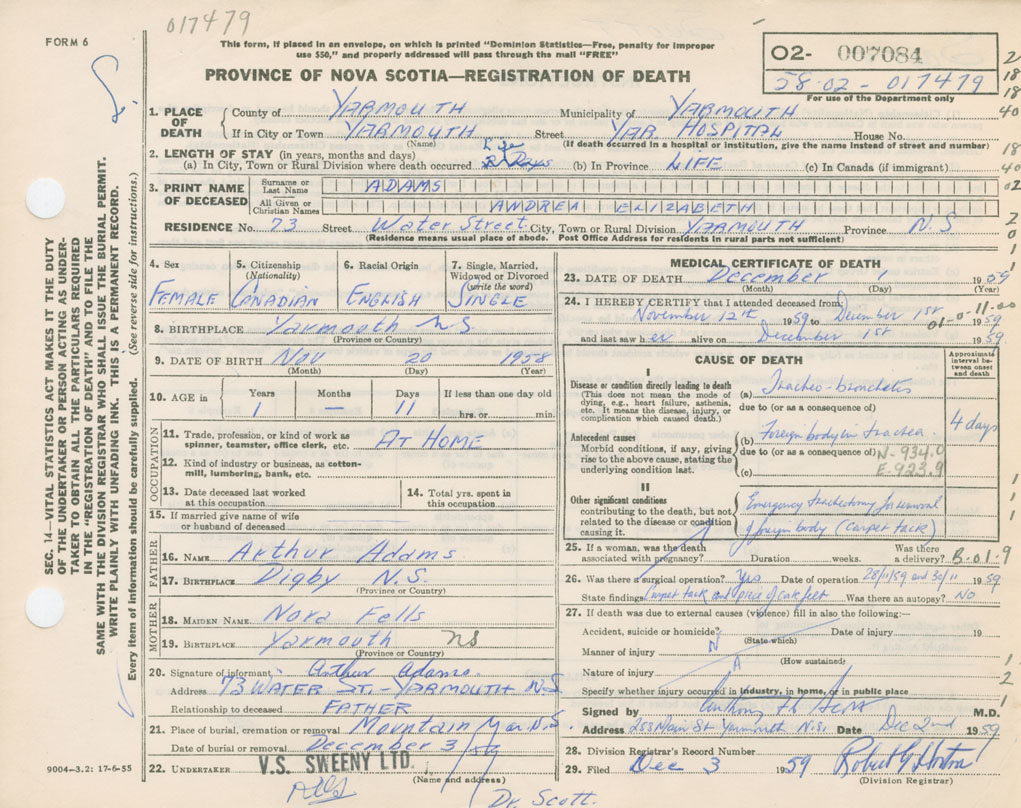 017479
FORM 6
This form, if placed in an envelope, on which is printed "Dominion Statistics—Free, penalty for improper
use $50," and properly addressed will pass through the mail "FREE"
PROVINCE OF NOVA SCOTIA—REGISTRATION OF DEATH
O2- 007084
58-02-017479
For use of the Department only
1. PLACE OF DEATH
County of YARMOUTH Municipality of YARMOUTH
If in City or Town YARMOUTH Street YAR. HOSPITAL House No.
(Name) (If death occurred in a hospital or institution, give the name instead of street and number)
2. LENGTH OF STAY (in years, months and days)
(a) In City, Town or Rural Division where death occurred Days (b) In Province LIFE (c) In Canada (if immigrant)
3. PRINT NAME OF DECEASED
Surname or Last Name ADAMS
All Given or Christian Names ANDREA ELIZABETH
RESIDENCE No. 73 Street Water Street City, Town or Rural Division YARMOUTH Province N.S
(Residence means usual place of abode. Post Office Address for residents in rural parts not sufficient)
4. Sex FEMALE
5. Citizenship (Nationality) CANADIAN
6. Racial Origin ENGLISH
7. Single, Married, Widowed or Divorced (write the word) SINGLE
8. BIRTHPLACE Yarmouth NS
(Province or Country)
9. DATE OF BIRTH Nov 20 1958
(Month) (Day) (Year)
10. AGE in Years Months Days If less than one day old
1 — 11 hrs. or min.
OCCUPATION
11. Trade, profession, or kind of work as spinner, teamster, office clerk, etc. AT HOME
12. Kind of industry or business, as cotton-mill, lumbering, bank, etc.
13. Date deceased last worked at this occupation
14. Total yrs. spent in this occupation
15. If married give name of wife or husband of deceased
FATHER
16. NAME Arthur Adams
17. BIRTHPLACE Digby N.S.
(Province or Country)
MOTHER
18. MAIDEN NAME Nora Fells
19. BIRTHPLACE Yarmouth NS
(Province or Country)
20. Signature of informant Arthur Adams
Address 73 WATER ST. - YARMOUTH N.S
Relationship to deceased FATHER
21. Place of burial, cremation or removal Mountain Yar. N.S.
Date of burial or removal December 3/59
22. UNDERTAKER V.S. SWEENY LTD.
(Name and address)
Dr. Scott.
MEDICAL CERTIFICATE OF DEATH
23. DATE OF DEATH December 1 1959
(Month) (Day) (Year)
24. I HEREBY CERTIFY that I attended deceased from
November 12th 1959 to December 1st 1959
01-0-11-00
and last saw her alive on December 1st 1959
CAUSE OF DEATH
Approximate interval between onset and death
I
Disease or condition directly leading to death
(This does not mean the mode of dying, e.g., heart failure, asthenia, etc. It means the disease, injury, or complication which caused death.)
(a) Tracheo-bronchitis
due to (or as a consequence of)
4 days
Antecedent causes
Morbid conditions, if any, giving rise to the above cause, stating the underlying condition last.
(b) Foreign body in trachea
due to (or as a consequence of) N-934.0
(c) E-923.9
II
Other significant conditions
contributing to the death, but not related to the disease or condition causing it.
Emergency tracheotomy for removal
of foreign body (carpet tack)
25. If a woman, was the death associated with pregnancy? Duration weeks. Was there a delivery? B-01.9
26. Was there a surgical operation? Yes Date of operation 28/11/59 and 30/11 1959
State findings Carpet tack and piece of carpet Was there an autopsy? NO
27. If death was due to external causes (violence) fill in also the following:—
Accident, suicide or homicide? Date of injury 19
(State which)
Manner of injury N
(How sustained)
Nature of injury A
Specify whether injury occurred in industry, in home, or in public place
Signed by Anthony M.D.
Address 258 Main St Yarmouth N.S. Date Dec 2nd 1959
28. Division Registrar's Record Number
29. Filed Dec 3 1959 Robert G Horton
(Division Registrar)
SEC. 14—VITAL STATISTICS ACT MAKES IT THE DUTY
OF THE UNDERTAKER OR PERSON ACTING AS UNDER-
TAKER TO OBTAIN ALL THE PARTICULARS REQUIRED
IN THE "REGISTRATION OF DEATH" AND TO FILE THE
SAME WITH THE DIVISION REGISTRAR WHO SHALL ISSUE THE BURIAL PERMIT.
WRITE PLAINLY WITH UNFADING INK. THIS IS A PERMANENT RECORD.
Every item of information should be carefully supplied. (See reverse side for instructions.)
9004—3.2: 17-6-55
2
18
18
40
18
40
02
2
0
1
1
1
1
2
1